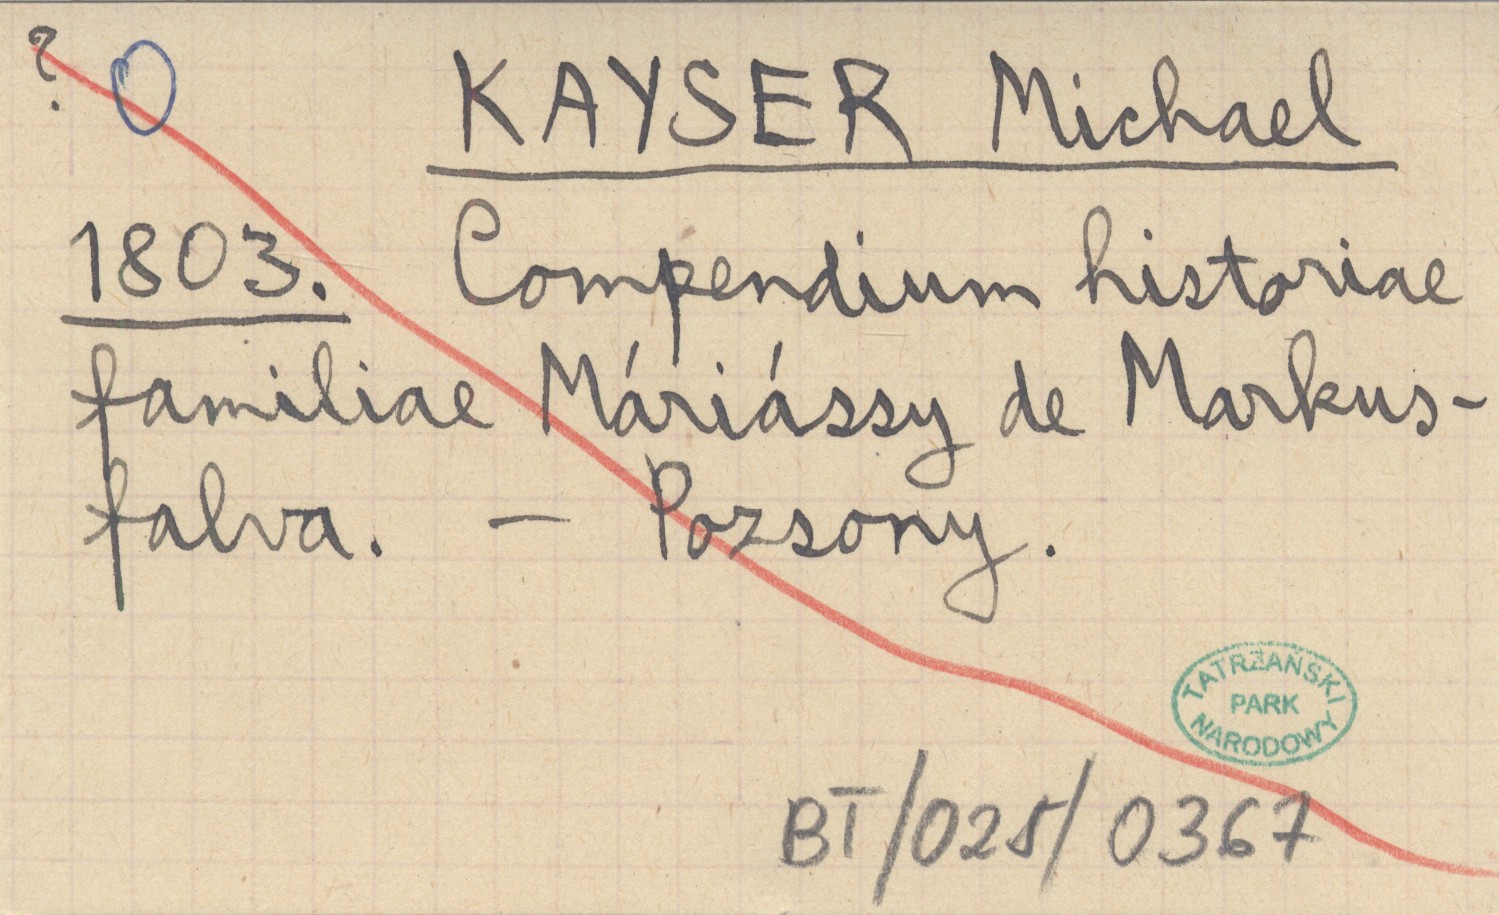 ? O
KAYSER Michael
1803. Compendium historiae
familiae Máriássy de Markus-
falva. – Pozsony.
TATRZAŃSKI
PARK
NARODOWY
BT/025/0367